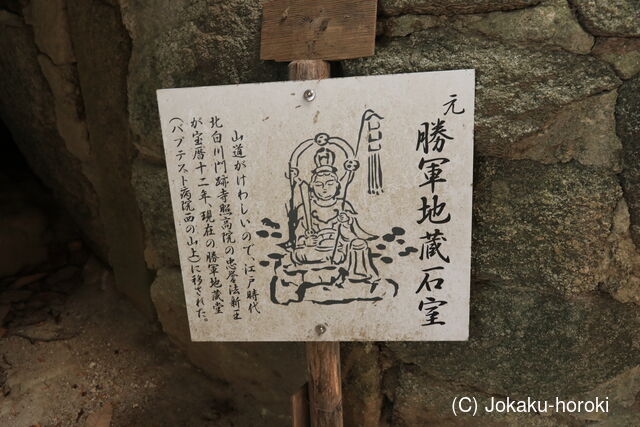 元
勝軍地蔵石室
山道がけわしいので、江戸時代
北白川門跡照高院の忠誉法新王
が宝暦十二年、現在の勝軍地蔵堂
(バプテスト病院西の山上)に移された。
(C) Jokaku-horoki